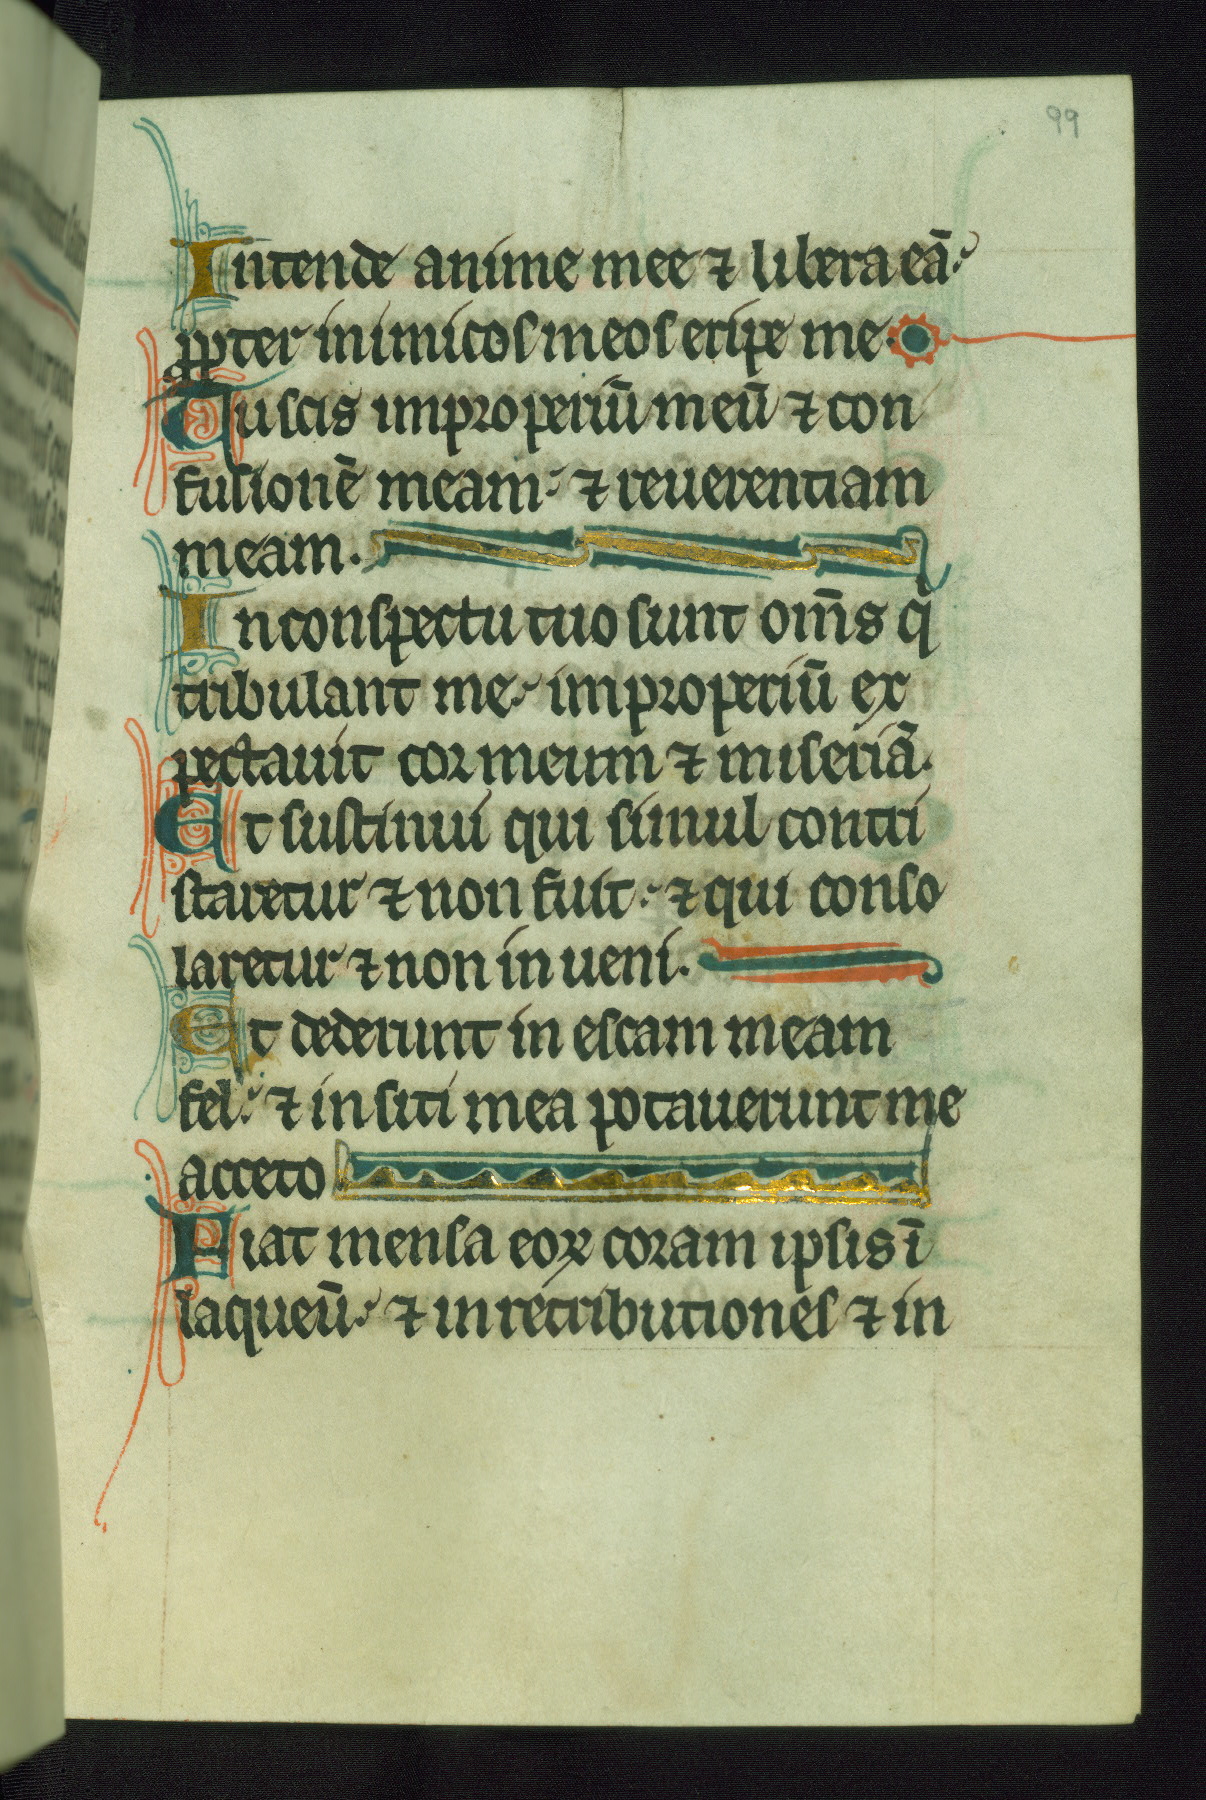 99
Intende anime mee ⁊ libera eā.
ꝓpter inimicos meos eripe me.
Tu scis improperiū meū ⁊ con
fusionē meam. ⁊ reuerentiam
meam.
In conspectu tuo sunt om̄s q̇
tribulant me. improperiū ex
pectauit cor meum ⁊ miseriā.
Et sustinui qui simul contri
staretur ⁊ non fuit. ⁊ qui conso
laretur ⁊ non inueni.
Et dederunt in escam meam
fel. ⁊ in siti mea potauerunt me
acceto
Fiat mensa eoꝝ coram ipsis ī
laqueū. ⁊ in retributiones ⁊ in